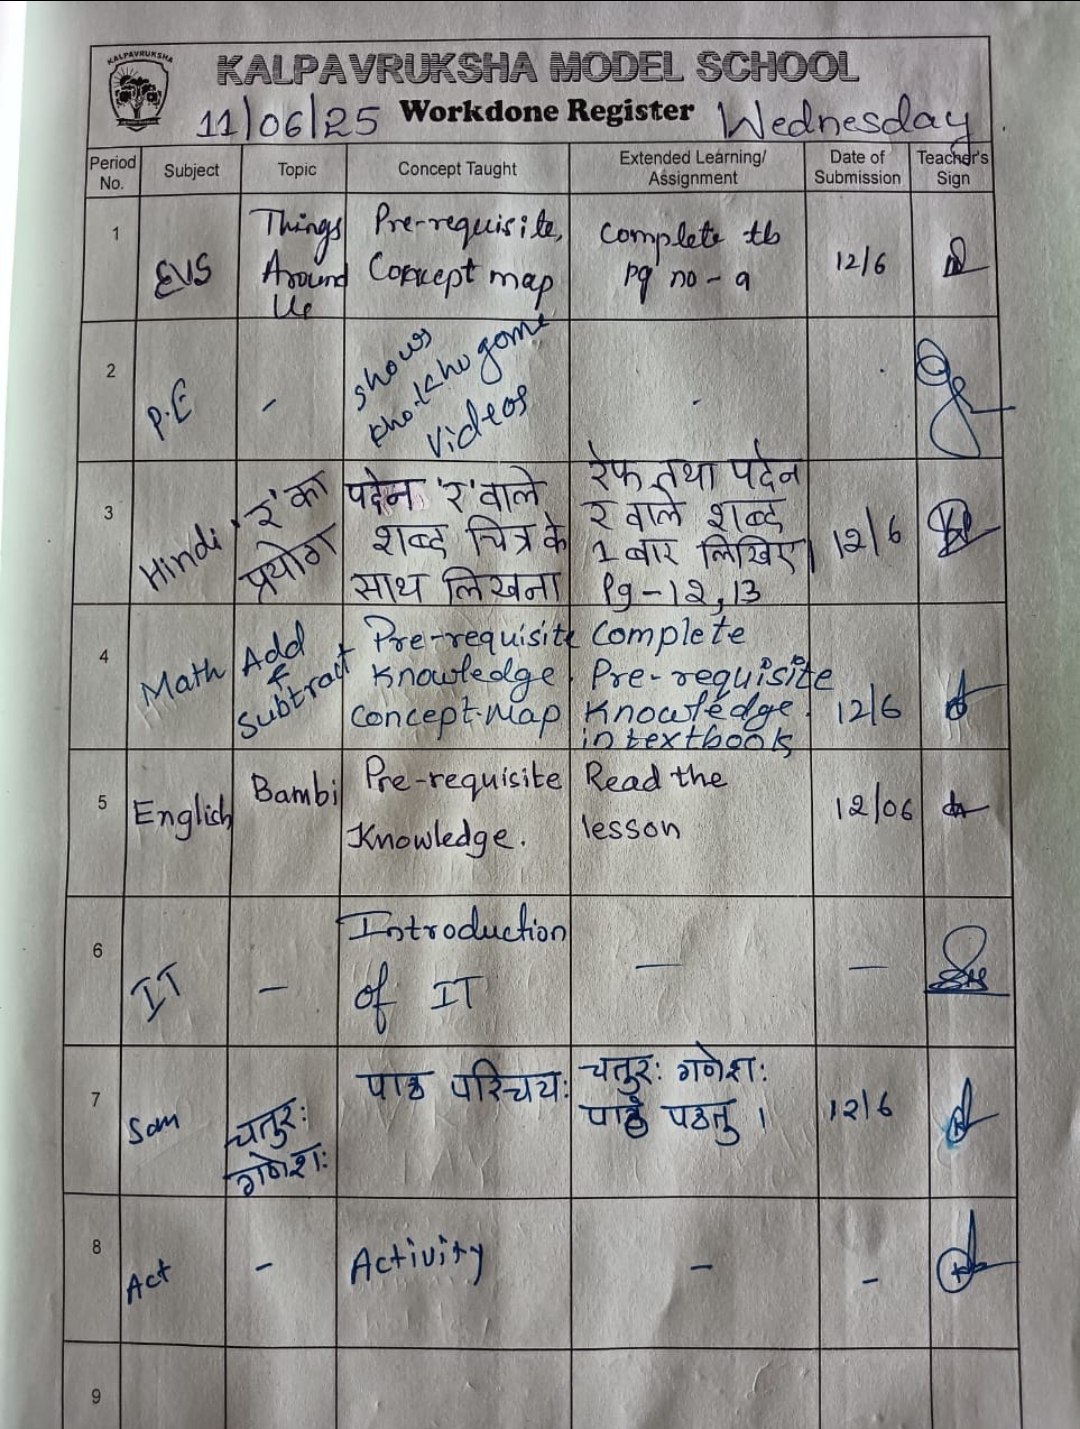 KALPAVRUKSHA
KALPAVRUKSHA MODEL SCHOOL
11/06/25 Workdone Register Wednesday
Period No. Subject Topic Concept Taught Extended Learning/ Assignment Date of Submission Teacher's Sign
1 EVS Things Around Us Pre-requisite, Concept map Complete tb pg no - 9 12/6
2 P.E - shows kho-kho game videos -
3 Hindi 'र' का प्रयोग पदेन 'र' वाले शब्द चित्र के साथ लिखना रेफ तथा पदेन र वाले शब्द 1 बार लिखिए। Pg - 12, 13 12/6
4 Math Add & Subtract Pre-requisite Knowledge. Concept-Map Complete Pre-requisite Knowledge. in textbook 12/6
5 English Bambi Pre-requisite Knowledge. Read the lesson 12/06
6 IT - Introduction of IT - -
7 San चतुरः गणेशः पाठ परिचयः चतुरः गणेशः पाठं पठतु । 12/6
8 Act - Activity - -
9